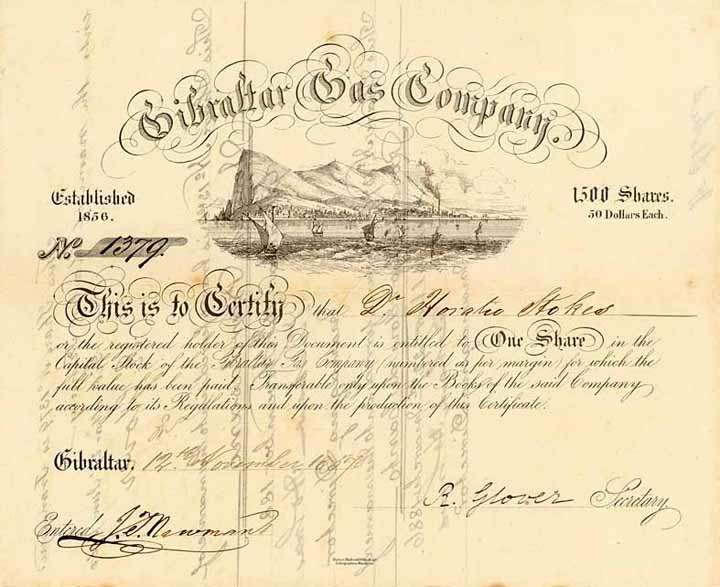 Gibraltar Gas Company.
Established
1856.
1500 Shares.
50 Dollars Each.
No. 1379.
This is to Certify that Dr Horatio Stokes
or the registered holder of this Document is entitled to One Share in the
Capital Stock of the Gibraltar Gas Company (numbered as per margin) for which the
full value has been paid. Transferable only upon the Books of the said Company
according to its Regulations and upon the production of this Certificate.
Gibraltar, 12th November
R. Glover Secretary
Entered J. T. Newman